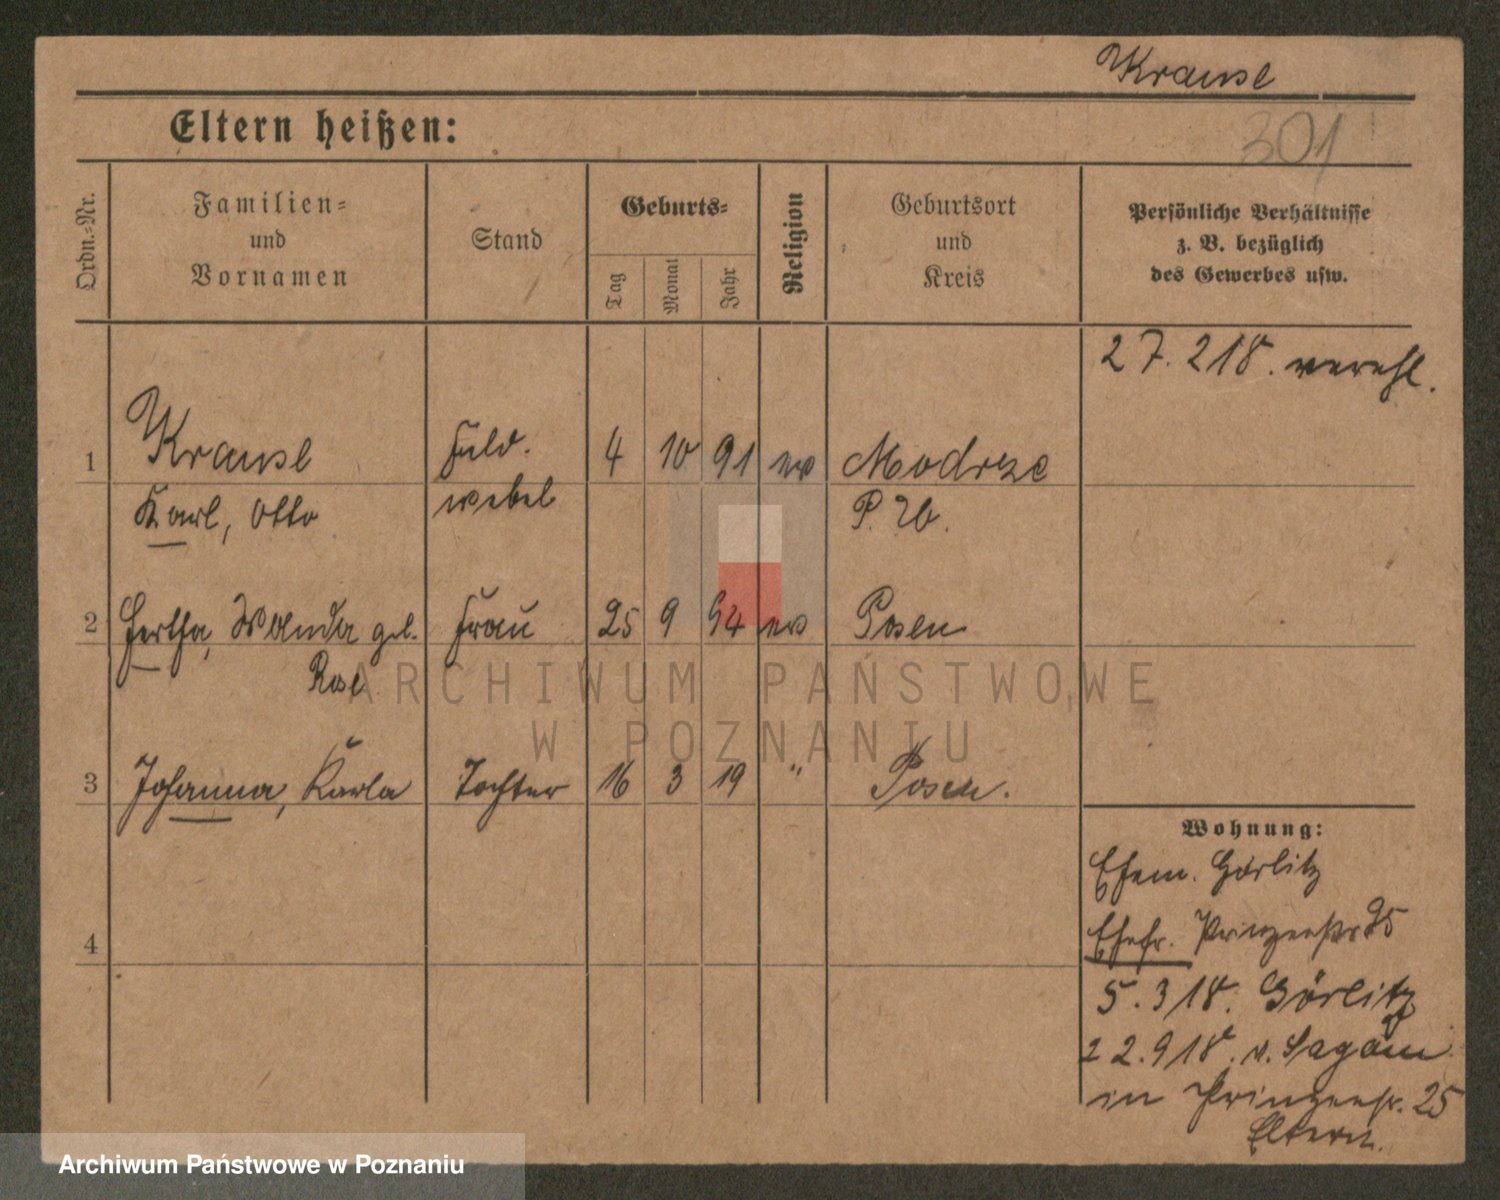 Krause
Eltern heißen:
301
Ordn.-Nr.
Familien-
und
Vornamen
Stand
Geburts-
Tag
Monat
Jahr
Religion
Geburtsort
und
Kreis
Persönliche Verhältnisse
z. B. bezüglich
des Gewerbes usw.
27.218. verehl.
1 Krause Feld. 4 10 91 ev Modrze
Karl, Otto webel P. W.
2 Hertha, Wanda geb. Frau 25 9 94 ev Posen
Rose
3 Johanna, Karla Tochter 16 3 19 " Posen.
4
Wohnung:
Ehem. Görlitz
Ehefr. Prinzenstr 25
5.318. Görlitz
22.918. v. Sagan
in Prinzenstr. 25
Eltern.
ARCHIWUM PAŃSTWOWE
W POZNANIU
Archiwum Państwowe w Poznaniu